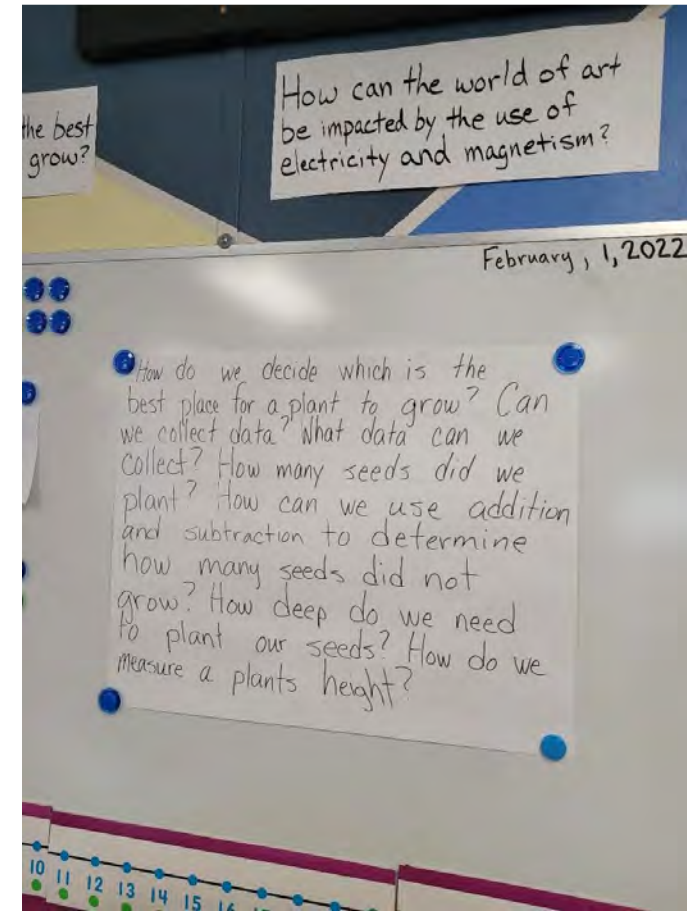 the best
grow?
How can the world of art
be impacted by the use of
electricity and magnetism?
February, 1, 2022
How do we decide which is the
best place for a plant to grow? Can
we collect data? What data can we
collect? How many seeds did we
plant? How can we use addition
and subtraction to determine
how many seeds did not
grow? How deep do we need
to plant our seeds? How do we
measure a plants height?
10 11 12 13 14 15 16